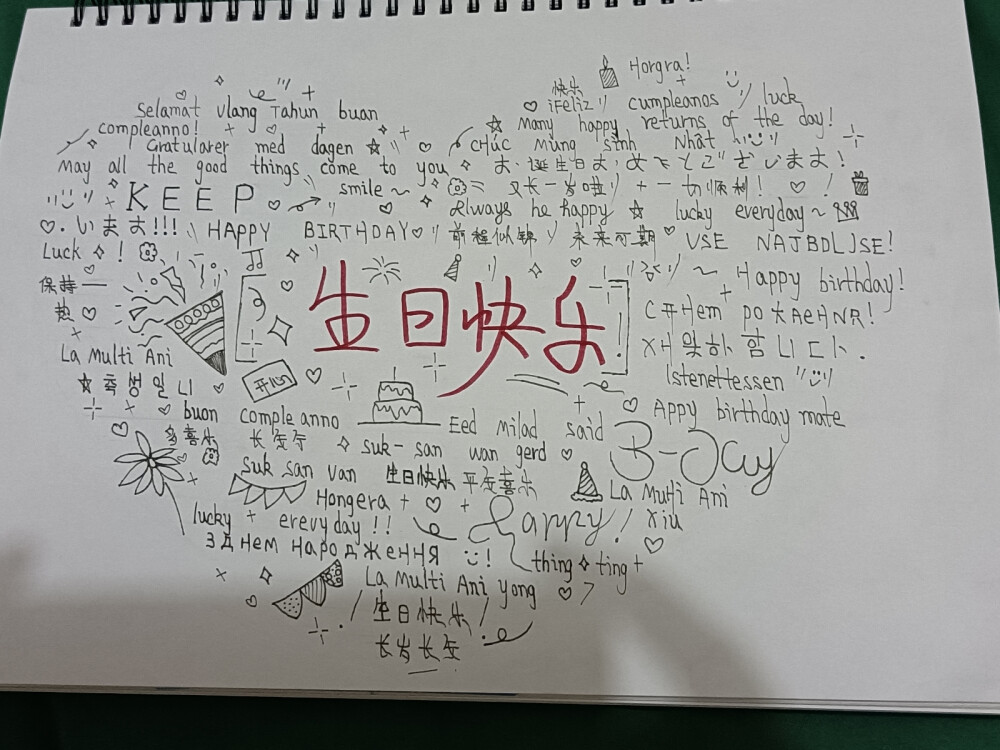 Horgra!
快乐
Selamat vlang Tahun buan
¡Feliz cumpleanos luck
compleanno!
Many happy returns of the day!
Gratularer med dagen
CHúc Mùng sinh Nhât
May all the good things come to you
お、誕生日お,めでとございます!
KEEP smile~
又长一岁啦 + 一切顺利!
Always he happy lucky everyday~
います!!! HAPPY BIRTHDAY
前程似锦 未来可期 VSE NAJBDLJSE!
Luck !
保持一
热
~ Happy birthday!
生日快乐
La Multi Ani
Istenettessen
축생일니
开心
Appy birthday mate
buon compleanno Eed milad said
喜乐 suk-san wan gerd
B-Day
suk san van 生日快乐 平安喜乐
La Multi Ani
Hongera +
lucky + erevyday!!
Happy! Xiu
З Днем народження !
thing ting+
La Multi Ani yong
生日快乐!
长岁长安